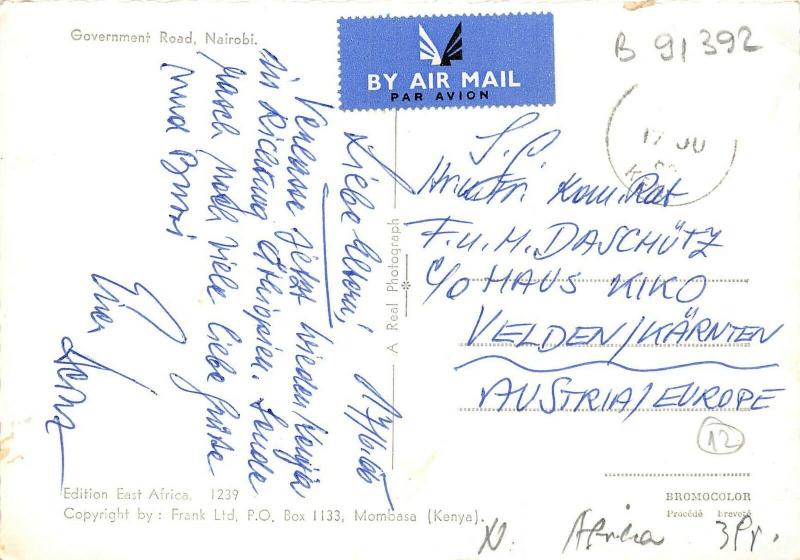 Government Road, Nairobi.
BY AIR MAIL
PAR AVION
B 91392
17 JU
Liebe Eltern,
17/6.66
Verlasse jetzt wieder Kenya
in Richtung Äthiopien. Sende
rasch noch viele liebe Grüsse
und Bussi
Euer Heinz
A Real Photograph
S. g.
Hr. u. Fr. Kom. Rat
F. u. M. DASCHÜTZ
C/O HAUS KIKO
VELDEN/KÄRNTEN
AUSTRIA/EUROPE
12
Edition East Africa, 1239
Copyright by: Frank Ltd, P.O. Box 1133, Mombasa (Kenya).
BROMOCOLOR
Procédé breveté
N. Afrika 3Pr.